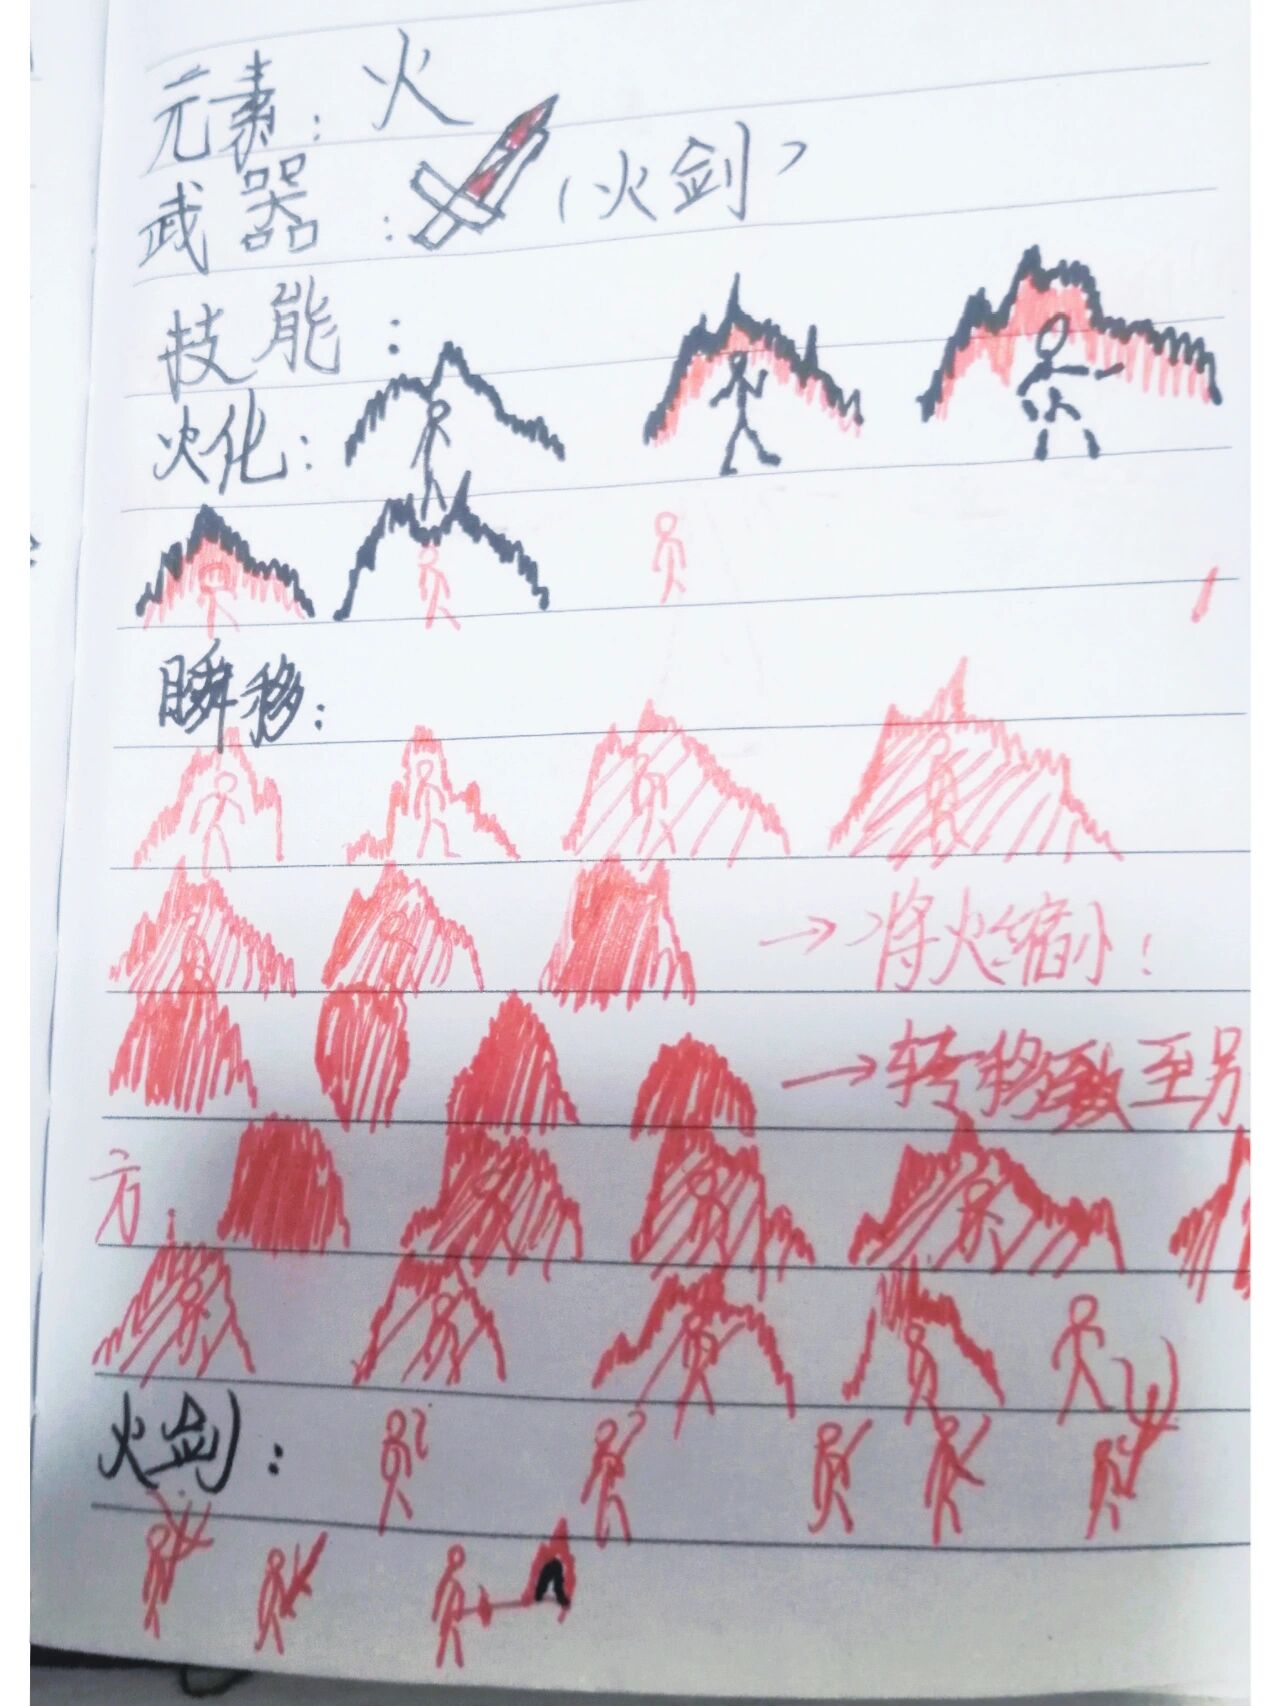 元素：火
武器：（火剑）
技能：
火化：
瞬移：
→将火缩小！
→转移至另
方
火剑：